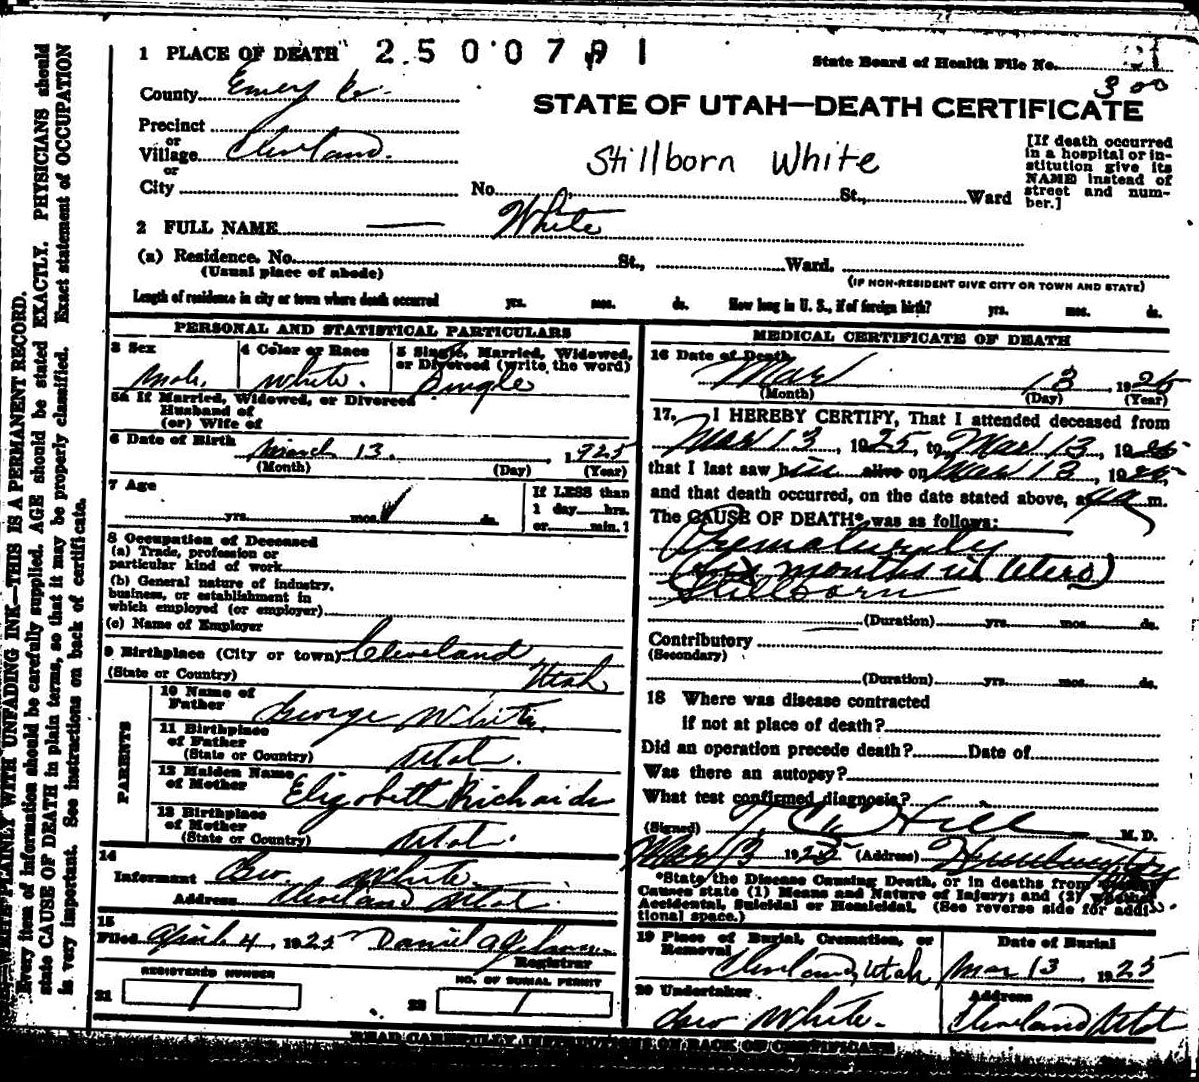 1 PLACE OF DEATH 2500791
State Board of Health File No. 21
300
County Emery Co.
STATE OF UTAH—DEATH CERTIFICATE
Precinct
or
Village Cleveland.
or
City No. St., Ward
Stillborn White
[If death occurred
in a hospital or in-
stitution give its
NAME instead of
street and num-
ber.]
2 FULL NAME — White
(a) Residence. No. St., Ward.
(Usual place of abode)
(IF NON-RESIDENT GIVE CITY OR TOWN AND STATE)
Length of residence in city or town where death occurred yrs. mos. ds. How long in U. S., if of foreign birth? yrs. mos. ds.
PERSONAL AND STATISTICAL PARTICULARS
3 Sex
Male
4 Color or Race
White.
5 Single, Married, Widowed,
or Divorced (write the word)
Single
5a If Married, Widowed, or Divorced
Husband of
(or) Wife of
6 Date of Birth
March 13. , 1925
(Month) (Day) (Year)
7 Age
yrs. mos. ds.
If LESS than
1 day hrs.
or min.
8 Occupation of Deceased
(a) Trade, profession or
particular kind of work
(b) General nature of industry,
business, or establishment in
which employed (or employer)
(c) Name of Employer
9 Birthplace (City or town) Cleveland
(State or Country) Utah
PARENTS
10 Name of
Father George White.
11 Birthplace
of Father
(State or Country) Utah.
12 Maiden Name
of Mother Elizabeth Richards
13 Birthplace
of Mother
(State or Country) Utah.
14
Informant Geo. White.
Address Cleveland Utah.
15
Filed April 4, 1925 Daniel A
Registrar
REGISTERED NUMBER
21 1
NO. OF BURIAL PERMIT
22 1
MEDICAL CERTIFICATE OF DEATH
16 Date of Death
Mar 13, 1925
(Month) (Day) (Year)
17. I HEREBY CERTIFY, That I attended deceased from
Mar 13, 1925, to Mar 13, 1925
that I last saw him alive on Mar 13, 1925,
and that death occurred, on the date stated above, at 4 a m.
The CAUSE OF DEATH* was as follows:
Prematurity
(six months in utero)
Stillborn
(Duration) yrs. mos. ds.
Contributory
(Secondary)
(Duration) yrs. mos. ds.
18 Where was disease contracted
if not at place of death?
Did an operation precede death? Date of
Was there an autopsy?
What test confirmed diagnosis?
(Signed) T. C. Hill M. D.
Mar 13 1925 (Address)
*State the Disease Causing Death, or in deaths from
Causes state (1) Means and Nature of Injury; and (2) whether
Accidental, Suicidal or Homicidal. (See reverse side for addi-
tional space.)
19 Place of Burial, Cremation, or
Removal
Cleveland, Utah
Date of Burial
Mar 13, 1925
20 Undertaker
Geo White.
Address
Cleveland Utah
READ CAREFULLY INSTRUCTIONS ON BACK OF CERTIFICATE
WRITE PLAINLY WITH UNFADING INK—THIS IS A PERMANENT RECORD.
Every item of information should be carefully supplied. AGE should be stated EXACTLY. PHYSICIANS should
state CAUSE OF DEATH in plain terms, so that it may be properly classified. Exact statement of OCCUPATION
is very important. See instructions on back of certificate.